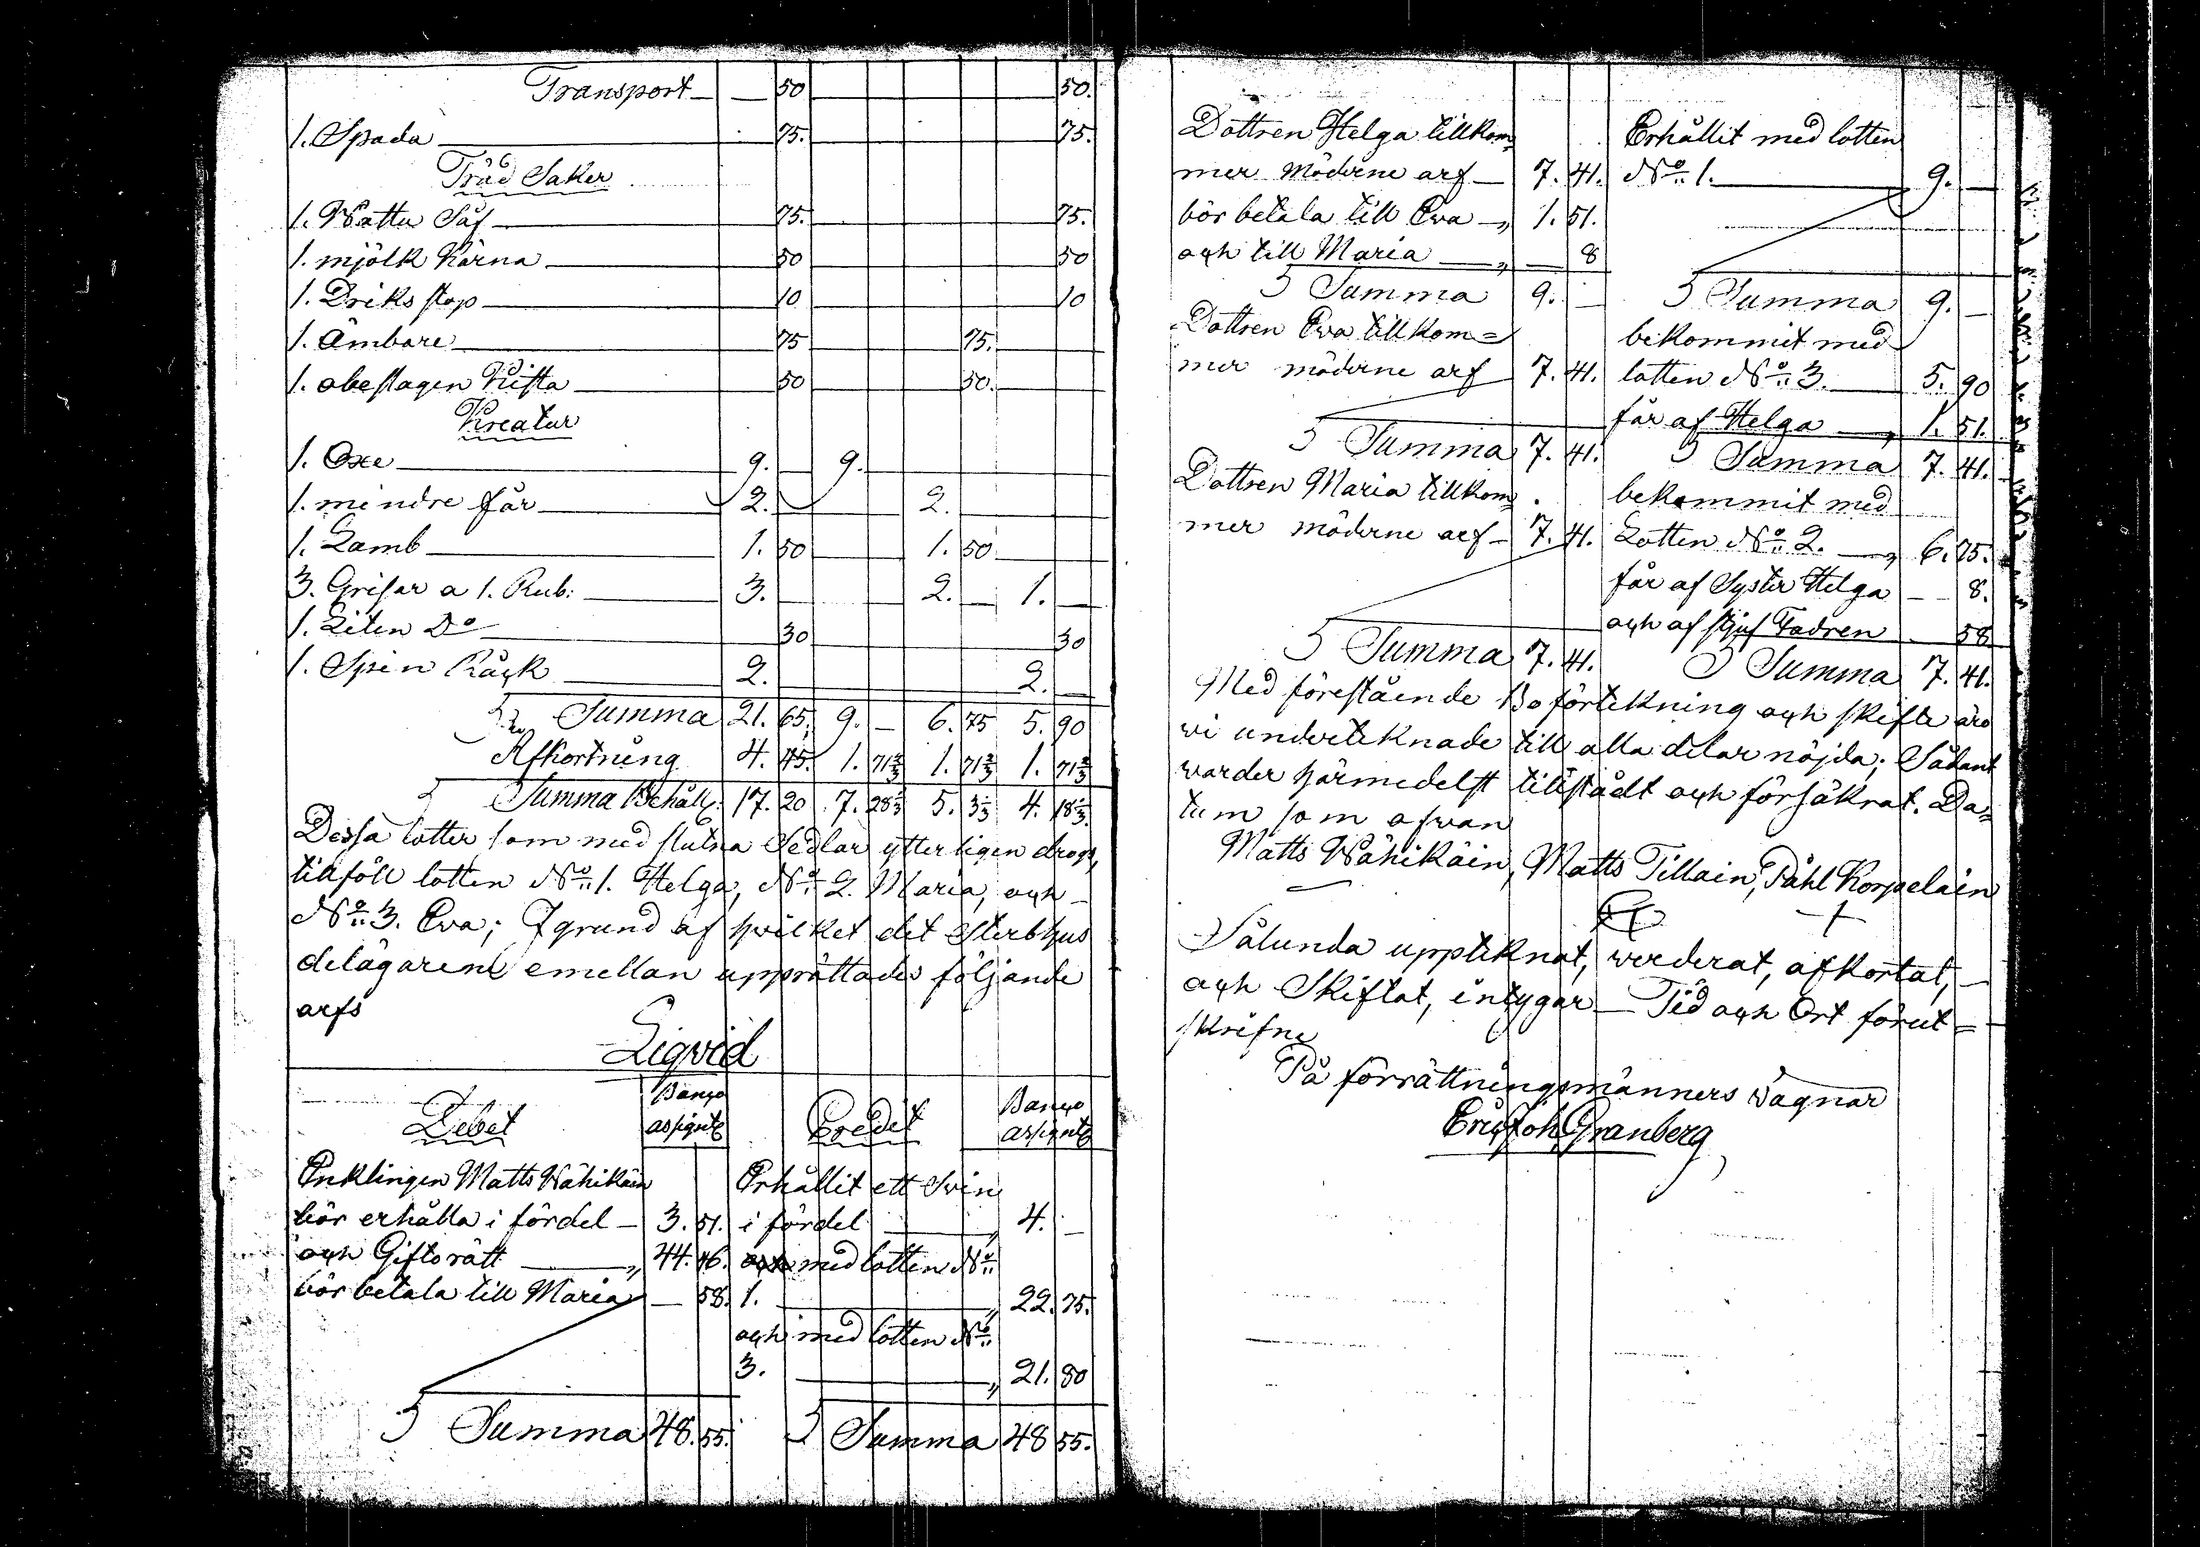 Transport — — 50 50.
1. Spada 75. 75.
Träd Saker
1. Wattu Såf 75. 75.
1. mjölk Kärna 50 50
1. Driks stop 10 10
1. Ämbare 75 75.
1. obeslagen Kista 50 50.
Kreatur
1. Oxe 9. — 9.
1. mindre får 2. — 2.
1. Lamb 1. 50 1. 50
3. Grisar a 1. Rub: 3. — 2. — 1. —
1. Liten Do 30 30
1. Spin Råck 2. 2. —
Summa 21. 65. 9. — 6. 75 5. 90
Afkortning 4. 45. 1. 71 2/3 1. 71 2/3 1. 71 2/3
Summa Behåll: 17. 20 7. 28 1/3 5. 3 1/3 4. 18 1/3
Dessa lotter som med slutna Sedlar ytterligen drogs,
tillföll lotten No 1. Helga, No 2. Maria, och
No 3. Eva; I grund af hvilket det Sterbhus
delägarene emellan upprättades följande
arfs
Liqvid
Debet Banco assignte Credit Banco assignte
Enklingen Matts Wähikäin Erhållit ett Svin
bör erhålla i fördel — 3. 51. i fördel 4. —
och Giftorätt 44. 46. och med lotten No
bör betala till Maria — 58. 1. 22. 75.
och med lotten No
3. 21. 80
Summa 48. 55. Summa 48 55.
Dottren Helga tillkom= Erhållit med lotten
mer möderne arf — 7. 41. No 1. 9. —
bör betala till Eva 1. 51.
och till Maria — 8
Summa 9. — Summa 9. —
Dottren Eva tillkom= bekommit med
mer möderne arf 7. 41. lotten No 3. 5. 90
får af Helga 1. 51.
Summa 7. 41. Summa 7. 41.
Dottren Maria tillkom= bekommit med
mer möderne arf — 7. 41. Lotten No 2. 6. 75.
får af Syster Helga — 8.
och af stjuf Fadren 58
Summa 7. 41. Summa 7. 41.
Med förestående Boförtekning och skifte äro
wi underteknade till alla delar nöjda; Sådant
warder härmedelst tillstådt och försäkrat. Da=
tum som ofwan
Matts Wähikäin, Matts Tillain, Påhl Korpelain
Sålunda uppteknat, werderat, afkortat,
och Skiftat, intygar — Tid och Ort förut=
skrifne
På förrättningsmänners vägnar
Eric Joh Granberg